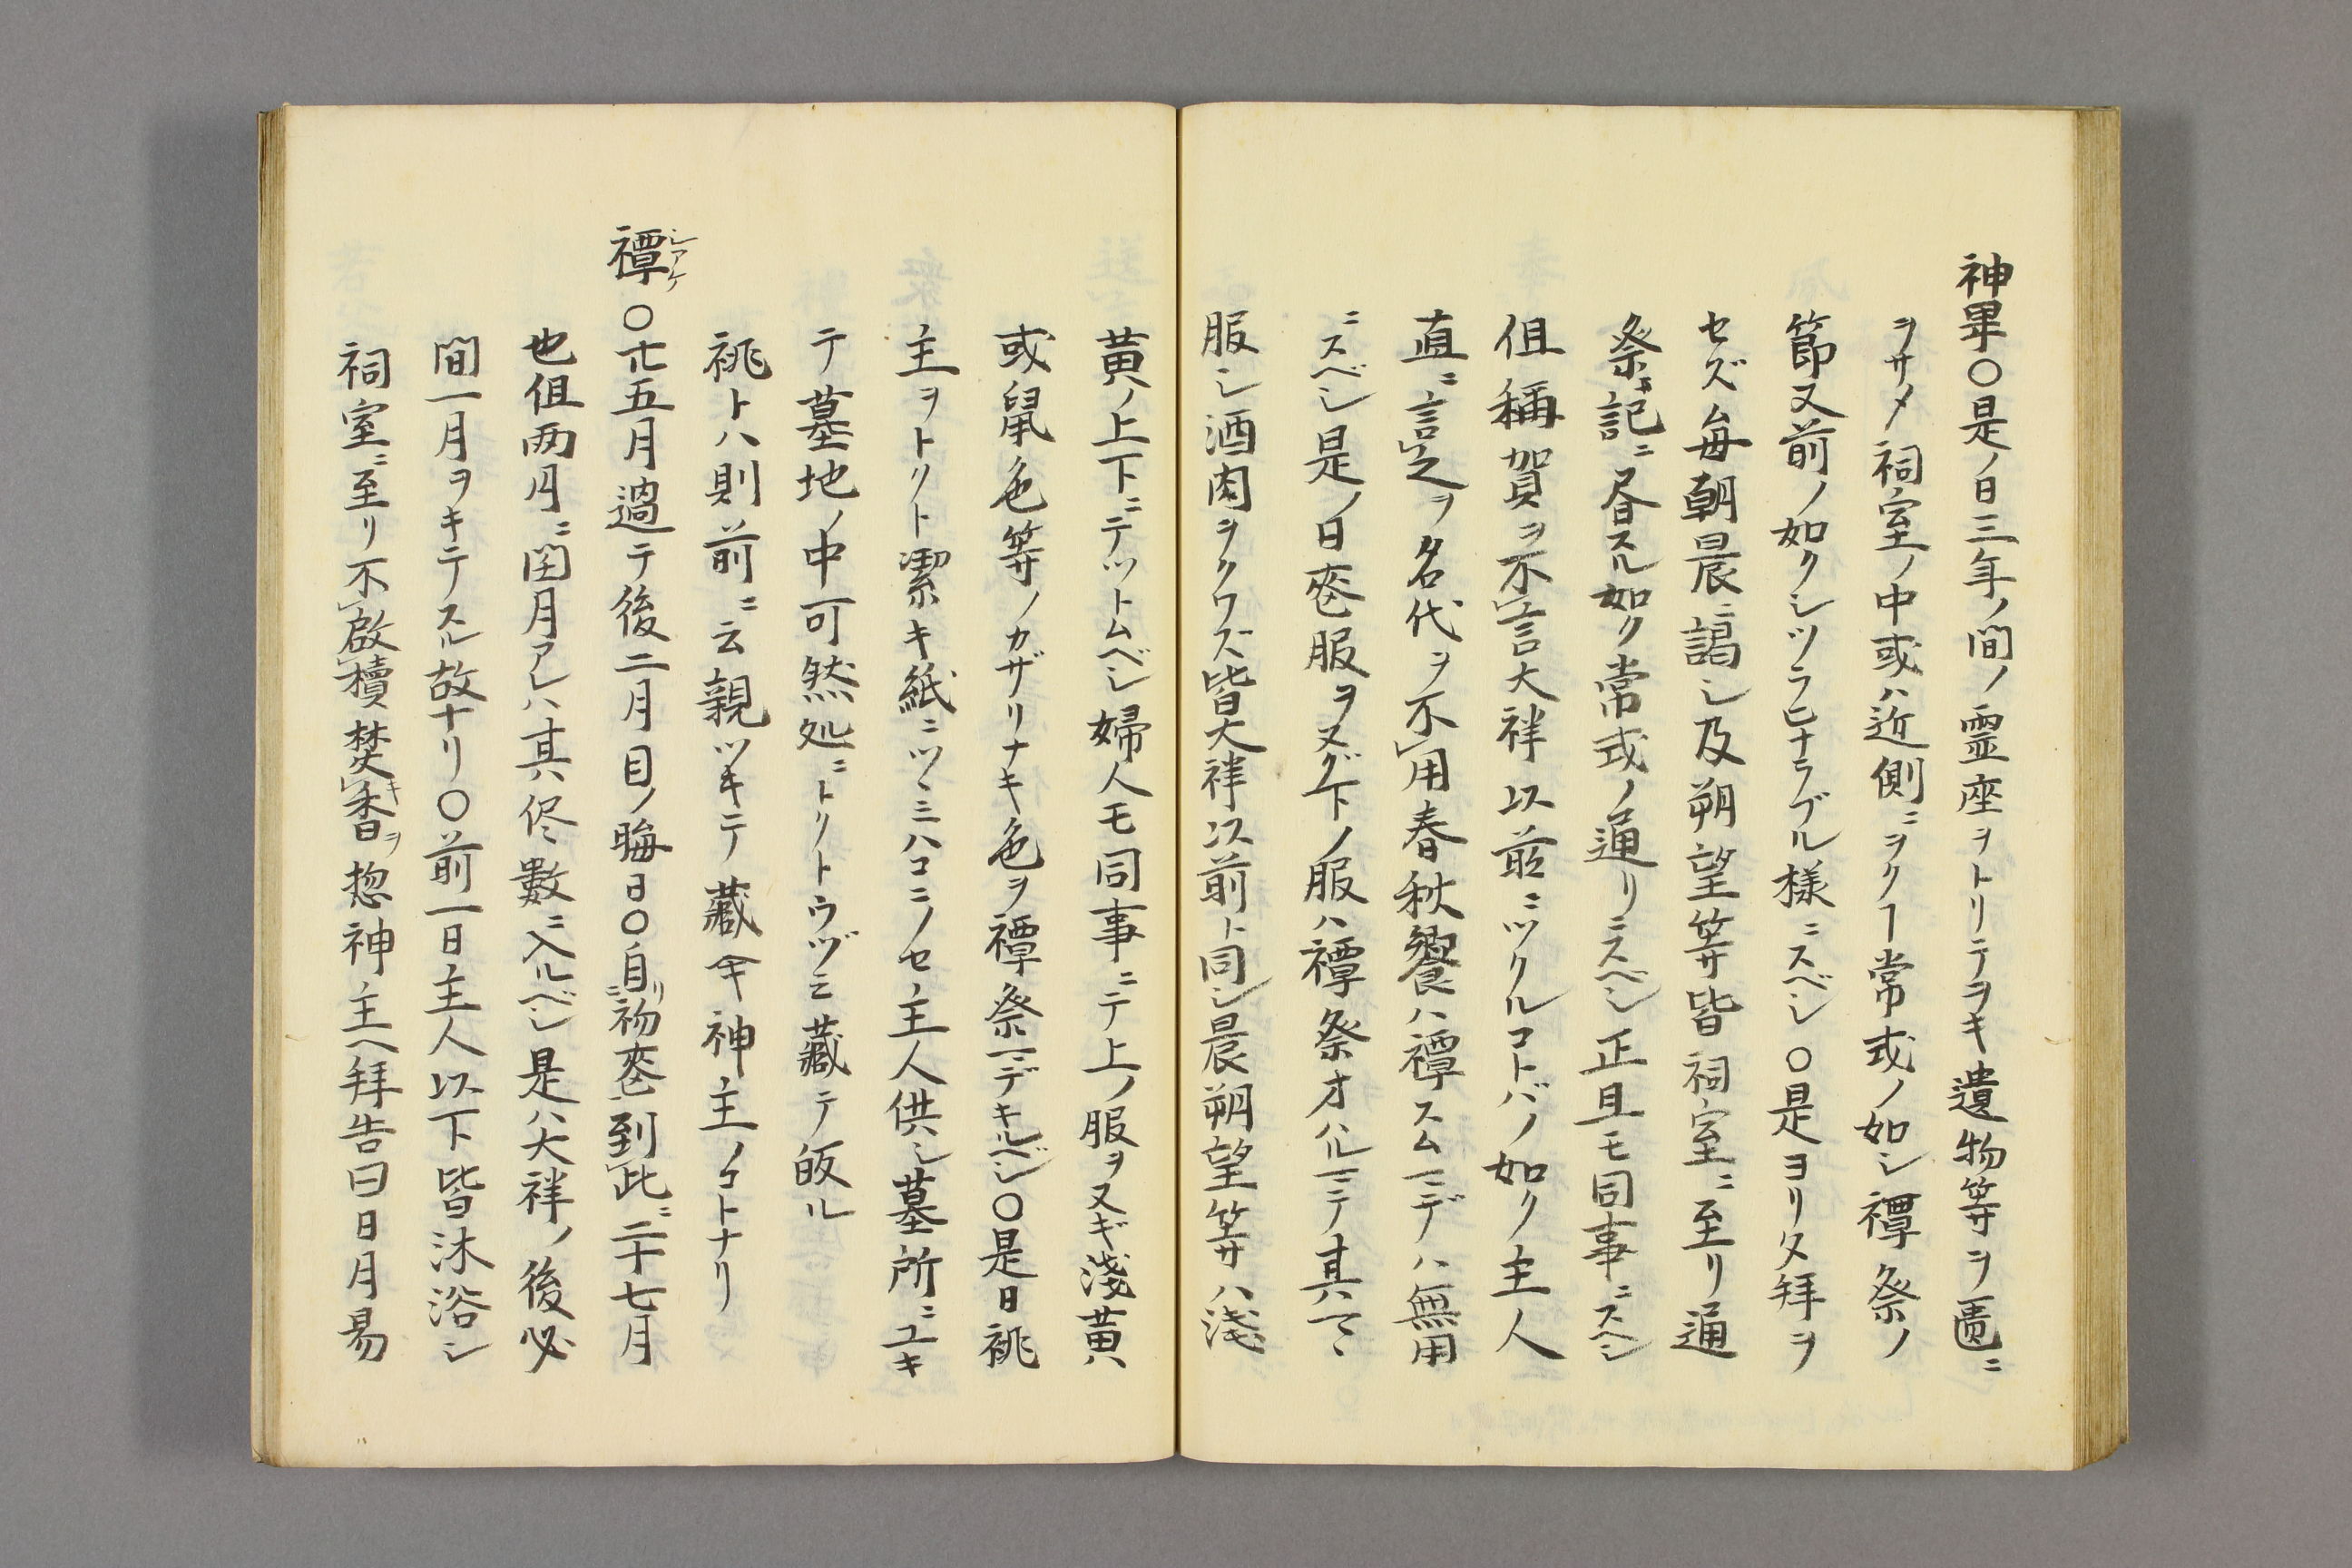 神畢〇是ノ日三年ノ間ノ霊座ヲトリテヲキ遺物等ヲ匱ニ
ヲサメ祠室ノ中或ハ近側ニヲクヿ常或ノ如シ禫祭ノ
節又前ノ如クシツラヒナラブル様ニスベシ〇是ヨリ夕拝ヲ
セズ毎朝晨ニ謁シ及朔望等皆祠室ニ至リ通
祭ニ記ニ昏スル如ク常或ノ通リニスベシ正旦モ同事ニスヘシ
但稱賀ヲ不言大祥以前ニツクルコトバノ如ク主人
直ニ言之ヲ名代ヲ不用春秋饗ハ禫スムマデハ無用
ニスベシ是ノ日喪服ヲヌグ下ノ服ハ禫祭オハルマテ其マヽ
服シ酒肉ヲクワズ皆大祥以前ト同シ晨朔望等ハ淺
黄ノ上下ニテツトムベシ婦人モ同事ニテ上ノ服ヲヌギ淺黄
或鼠色等ノカザリナキ色ヲ禫祭マデキルベシ〇是日祧
主ヲトクト潔キ紙ニツヽミハコニノセ主人供シ墓所ニユキ
テ墓地ノ中可然処ニトクトウヅミ藏テ皈ル
祧トハ則前ニ云親ツキテ藏ム神主ノコトナリ
禫シアケ〇廿五月過テ後二月目ノ晦日〇自リ初喪到此ニ二十七月
也但両月ニ閏月アレハ其侭數ニ入ルベシ是ハ大祥ノ後必
間一月ヲキテスル故ナリ〇前一日主人以下皆沐浴シ
祠室ニ至リ不啟櫝焚キ香ヲ惣神主ヘ拝告曰日月易